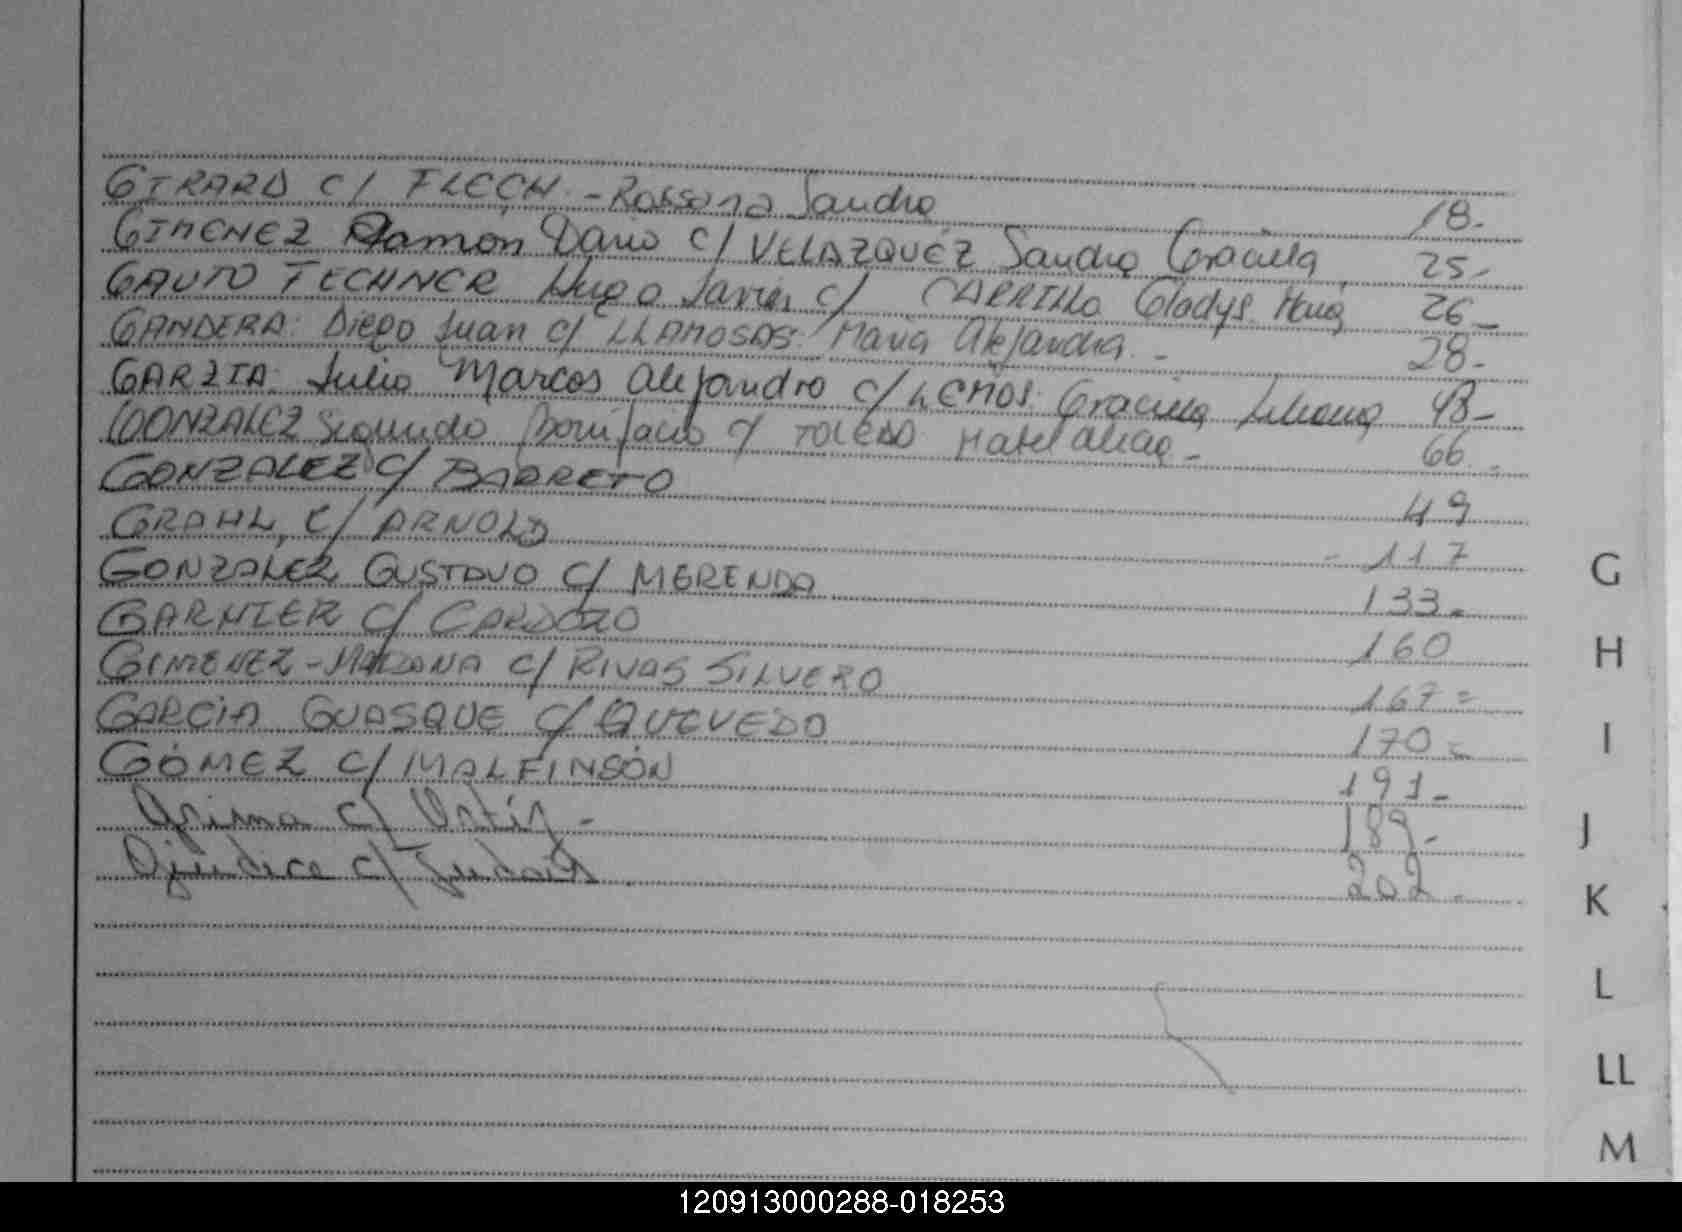 GIRARD c/ FLECH - Rossana Sandra 18.-
GIMENEZ Ramon Dario c/ VELAZQUEZ Sandra Graciela 25.-
GAUTO TECHNER Hugo Javier c/ CARRILLO Gladys 26 -
GANDERA Diego Juan c/ LLAMOSAS Maria Alejandra. - 28.-
GARZIA Julio Marcos Alejandro c/ LEMOS Graciela Liliana 43 -
GONZALEZ Segundo Bonifacio c/ TOLEDO 66.-
GONZALEZ c/ BARRETO 49
GRAHL c/ ARNOLD - 117
GONZALEZ GUSTAVO c/ MERENDA 133 -
GARNIER c/ CARDOZO 160
GIMENEZ - c/ RIVAS SILVERO 167 =
GARCIA GUASQUE c/ QUEVEDO 170 =
GÓMEZ c/ MALFINSÓN 191 -
Grima c/ Ortiz - 189 -
c/ 202 -
G
H
I
J
K
L
LL
M
120913000288-018253